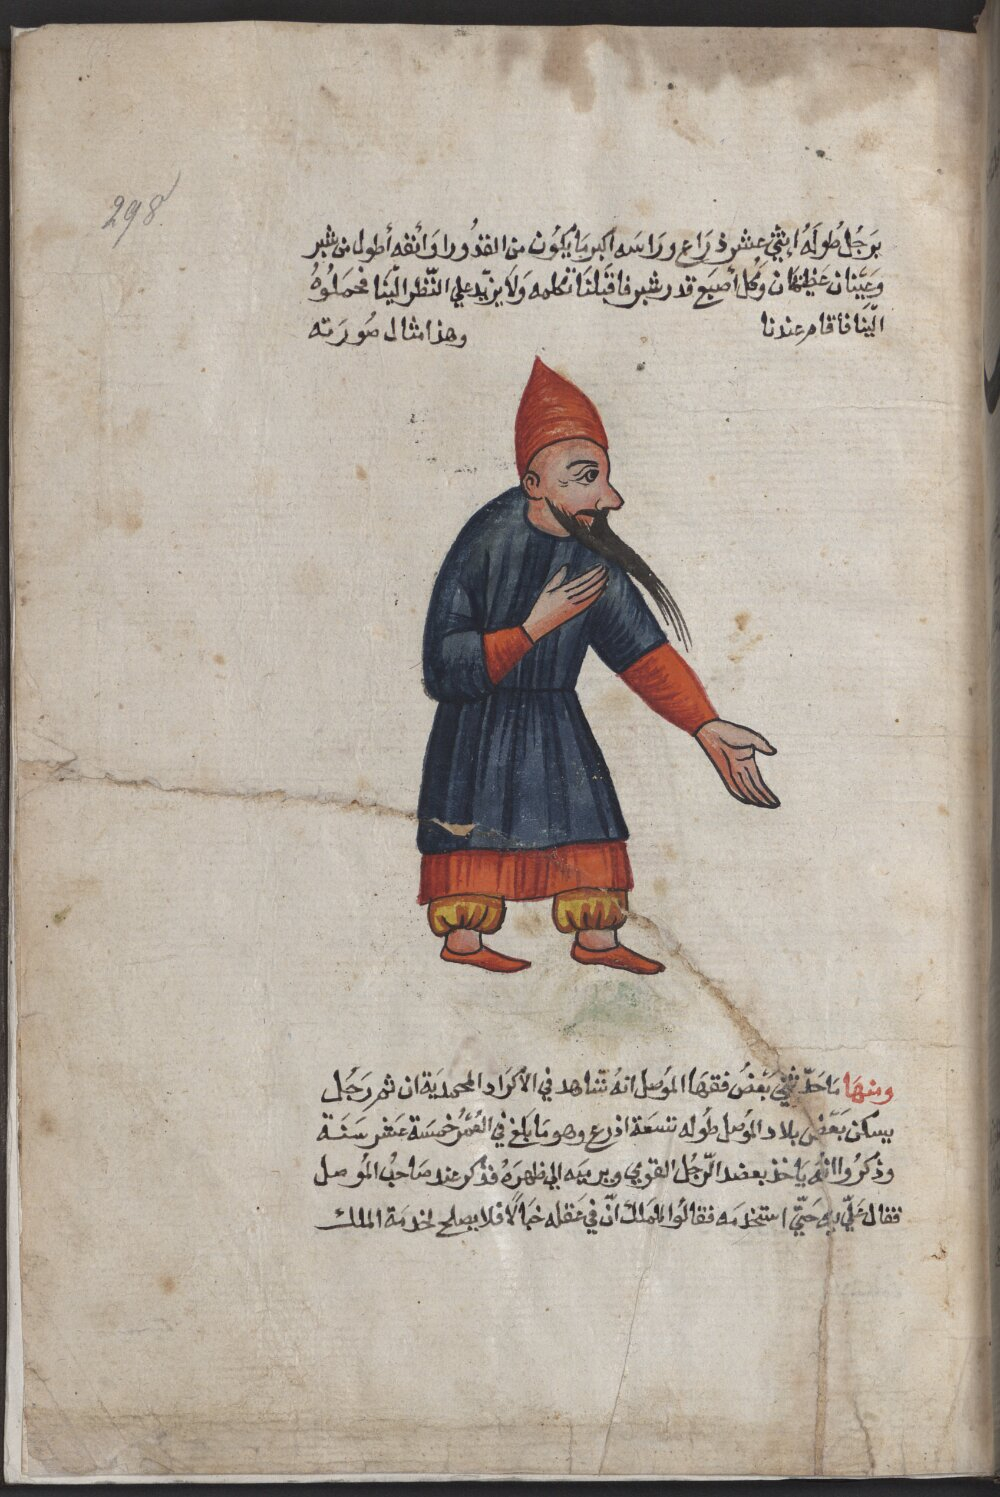 298
برَجُل طُولَهُ إثنَي عشر ذرَاع ورَاسَه اكبر مَا يَكُون من القدُور او أنفه أطول من شبر
وَعَيّنان عَظيمَان وَكُل أصبَع قدر شبر فاقبَلنَا نكلمه وَلاَ يزيّد علي النّظر الَينَا فحَملُوهُ
الَيّنَا فأقام عندنا وهذا مثال صُورَته
ومنهَا مَا حَدّثني بَعَضُ فقهَا المَوُصل انهُ شاهد في الأكرَاد المحمديَة ان ثمر رَجُل
يسكن بَعَّض بلاد المَوُصل طُوله تسعَة اذرع وهو مَا بَلغ في العُمُر خَمسَة عَشر سَنَة
وذكرُوا انهُ يَاخذ بعضد الرّجُل القوي ويرميَه الي ظهرَهُ فذُكر عند صَاحبُ المَوُصل
فقال عَليّ بهِ حَتيّ استخدمَه فقالوا للمَلكْ انّ في عَقله خبَالاً فلا يصلح لخدمَة الملك